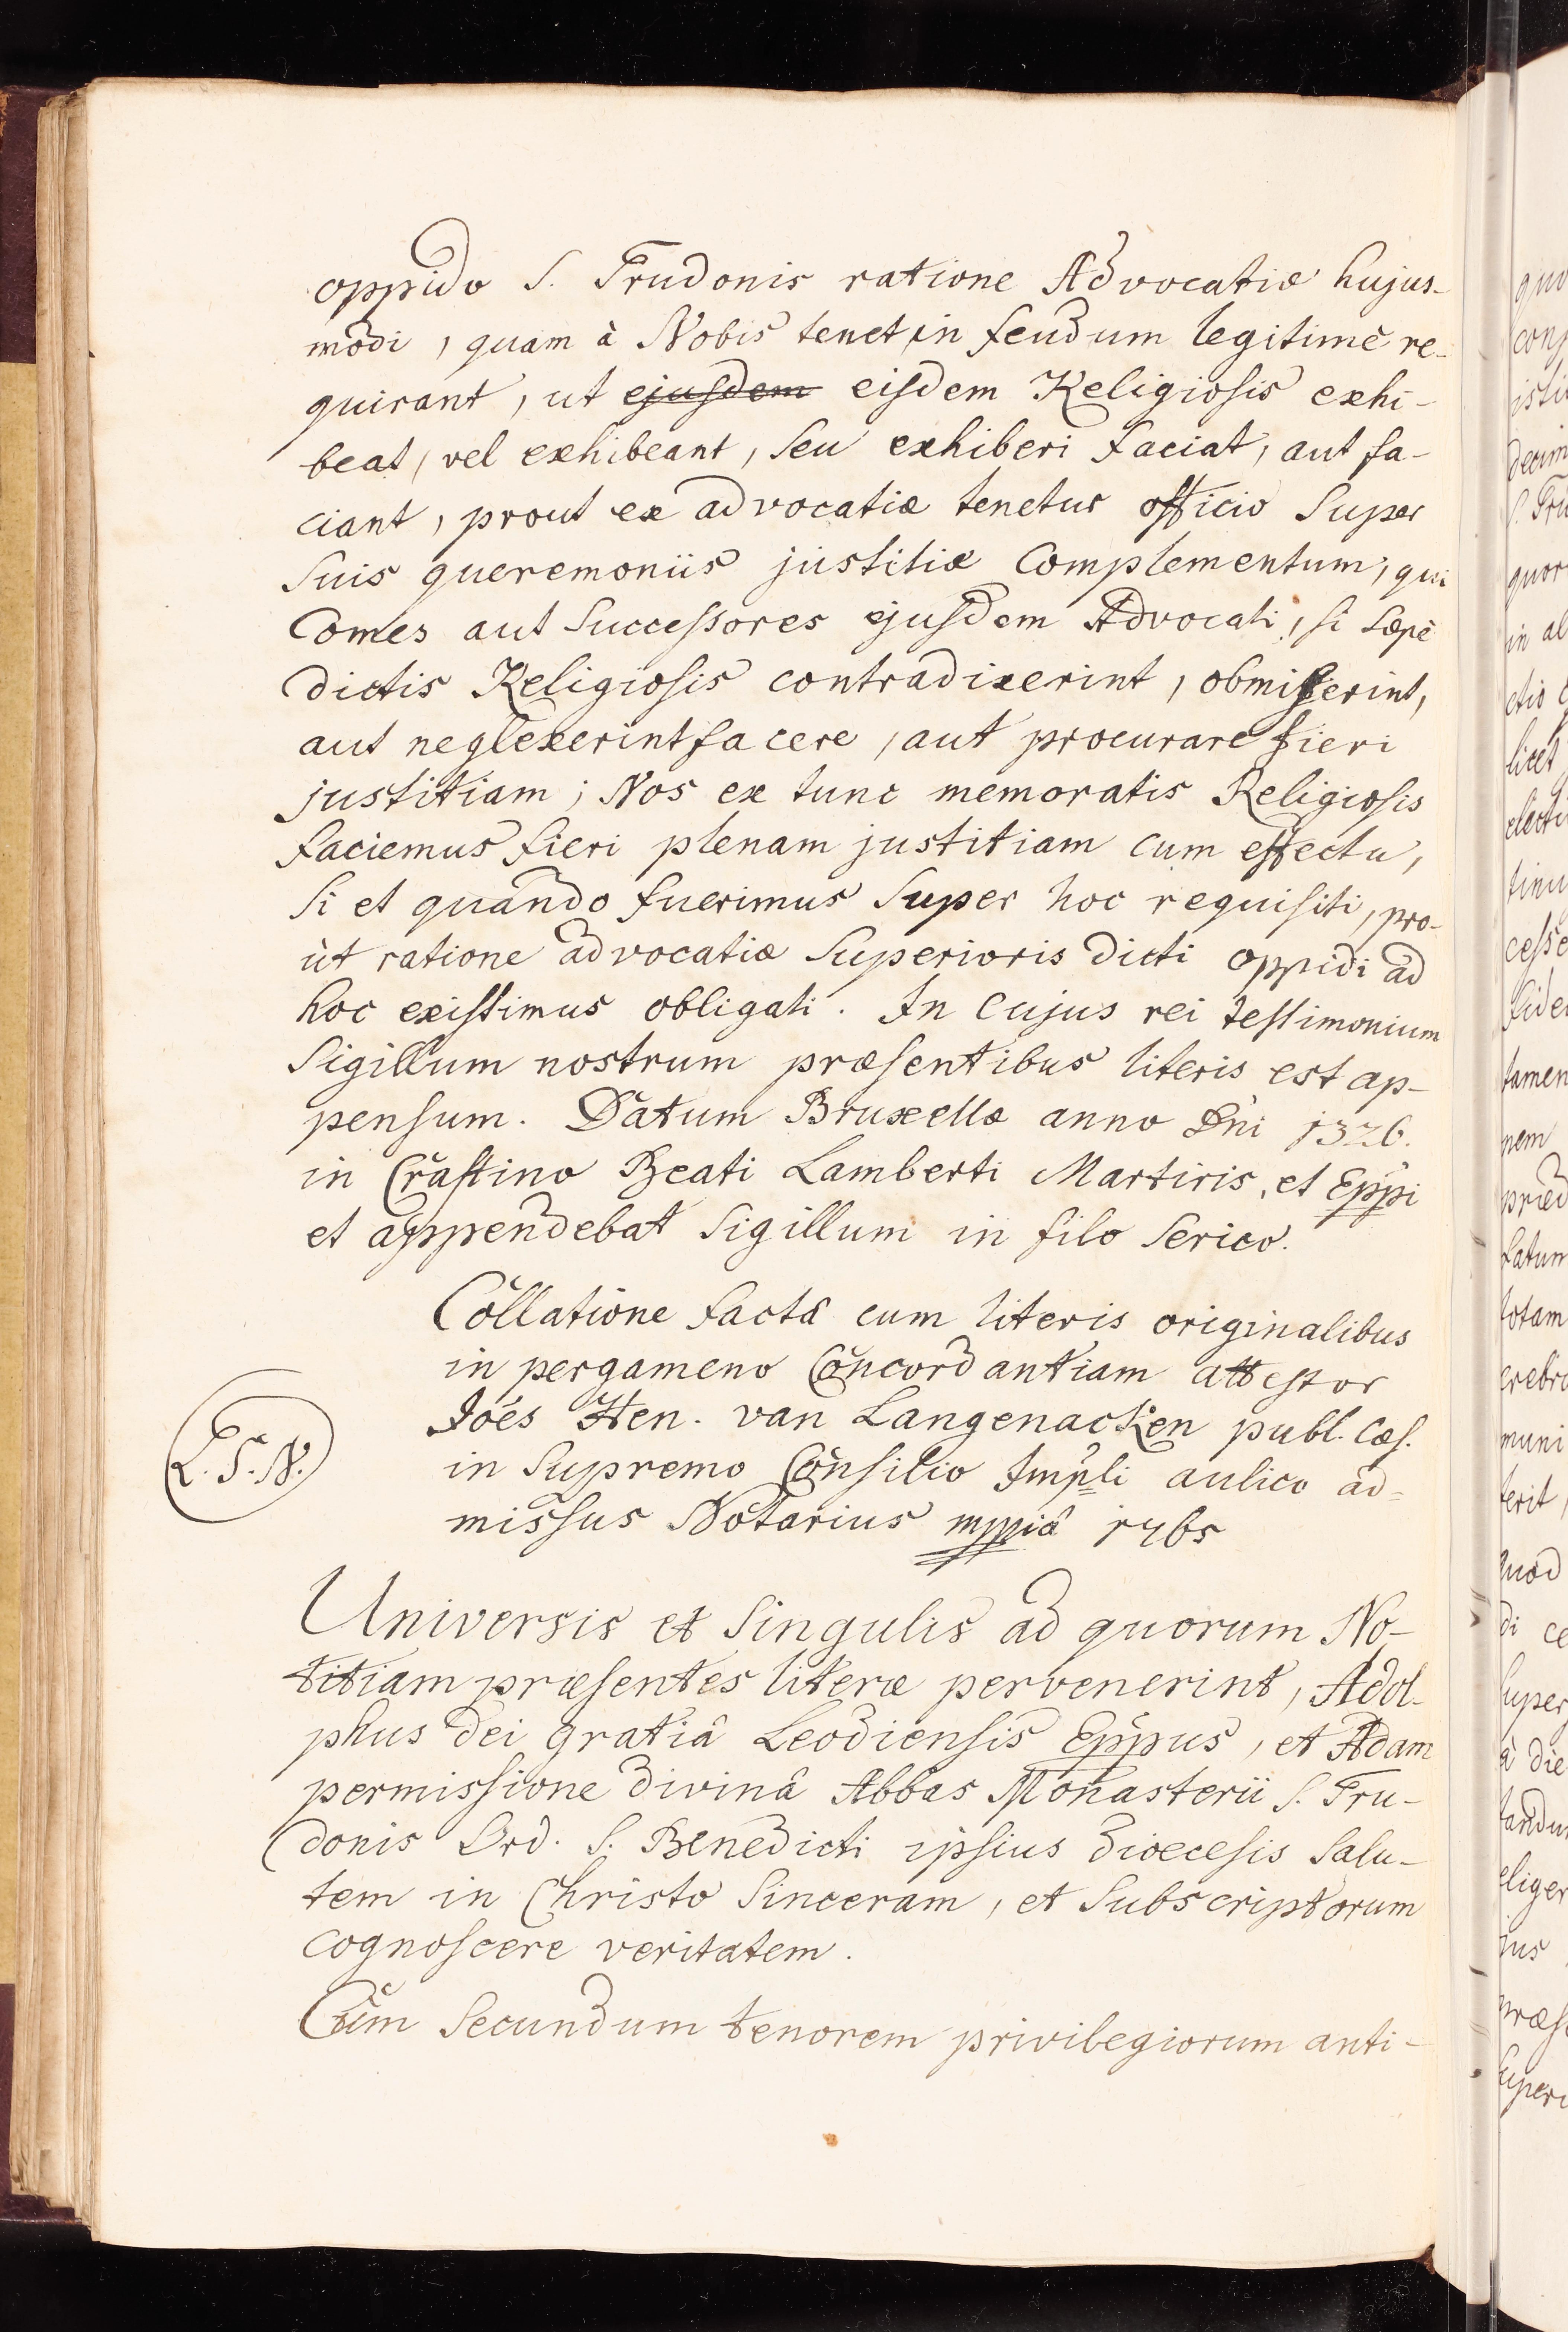 oppido S. Trudonis ratione Advocatiæ hujus-
modi, quam à Nobis tenet, in feudum legitimè re-
quirant, ut ejusdem eisdem Religiosis exhi-
beat, vel exhibeant, seu exhiberi faciat, aut fa-
ciant, prout ex advocatiæ tenetur officio super
suis queremoniis justitiæ Complementum, qui
Comes aut successores ejusdem Advocati, si sæpè
dictis Religiosis contradixerint, obmiserint,
aut neglexerint facere, aut procurare fieri
justitiam; Nos ex tunc memoratis Religiosis
faciemus fieri plenam justitiam cum effectu,
si et quando fuerimus super hoc requisiti, pro-
ùt ratione advocatiæ superioris dicti oppidi ad
hoc existimus obligati. In cujus rei testimonium
Sigillum nostrum præsentibus literis est ap-
pensum. Datum Bruxellæ anno Dni 1326.
in Crastino Beati Lamberti Martiris, et Eppi
et appendebat sigillum in filo serico.
Collatione factâ cum literis originalibus
in pergameno Concordantiam attestor
Joés Hen. van Langenacken publ. Cæs.
in Supremo Consilio Impli aulico ad=
missus Notarius mppiâ 1765
L.S.N.
Universis et singulis ad quorum No-
titiam præsentes literæ pervenerint, Adol-
phus Dei gratiâ Leodiensis Eppus, et Adam
permissione divinâ Abbas Monasterii S. Tru-
donis Ord. S. Benedicti ipsius dioecesis salu-
tem in Christo sinceram, et subscriptorum
cognoscere veritatem.
Cùm secundum tenorem privilegiorum anti-